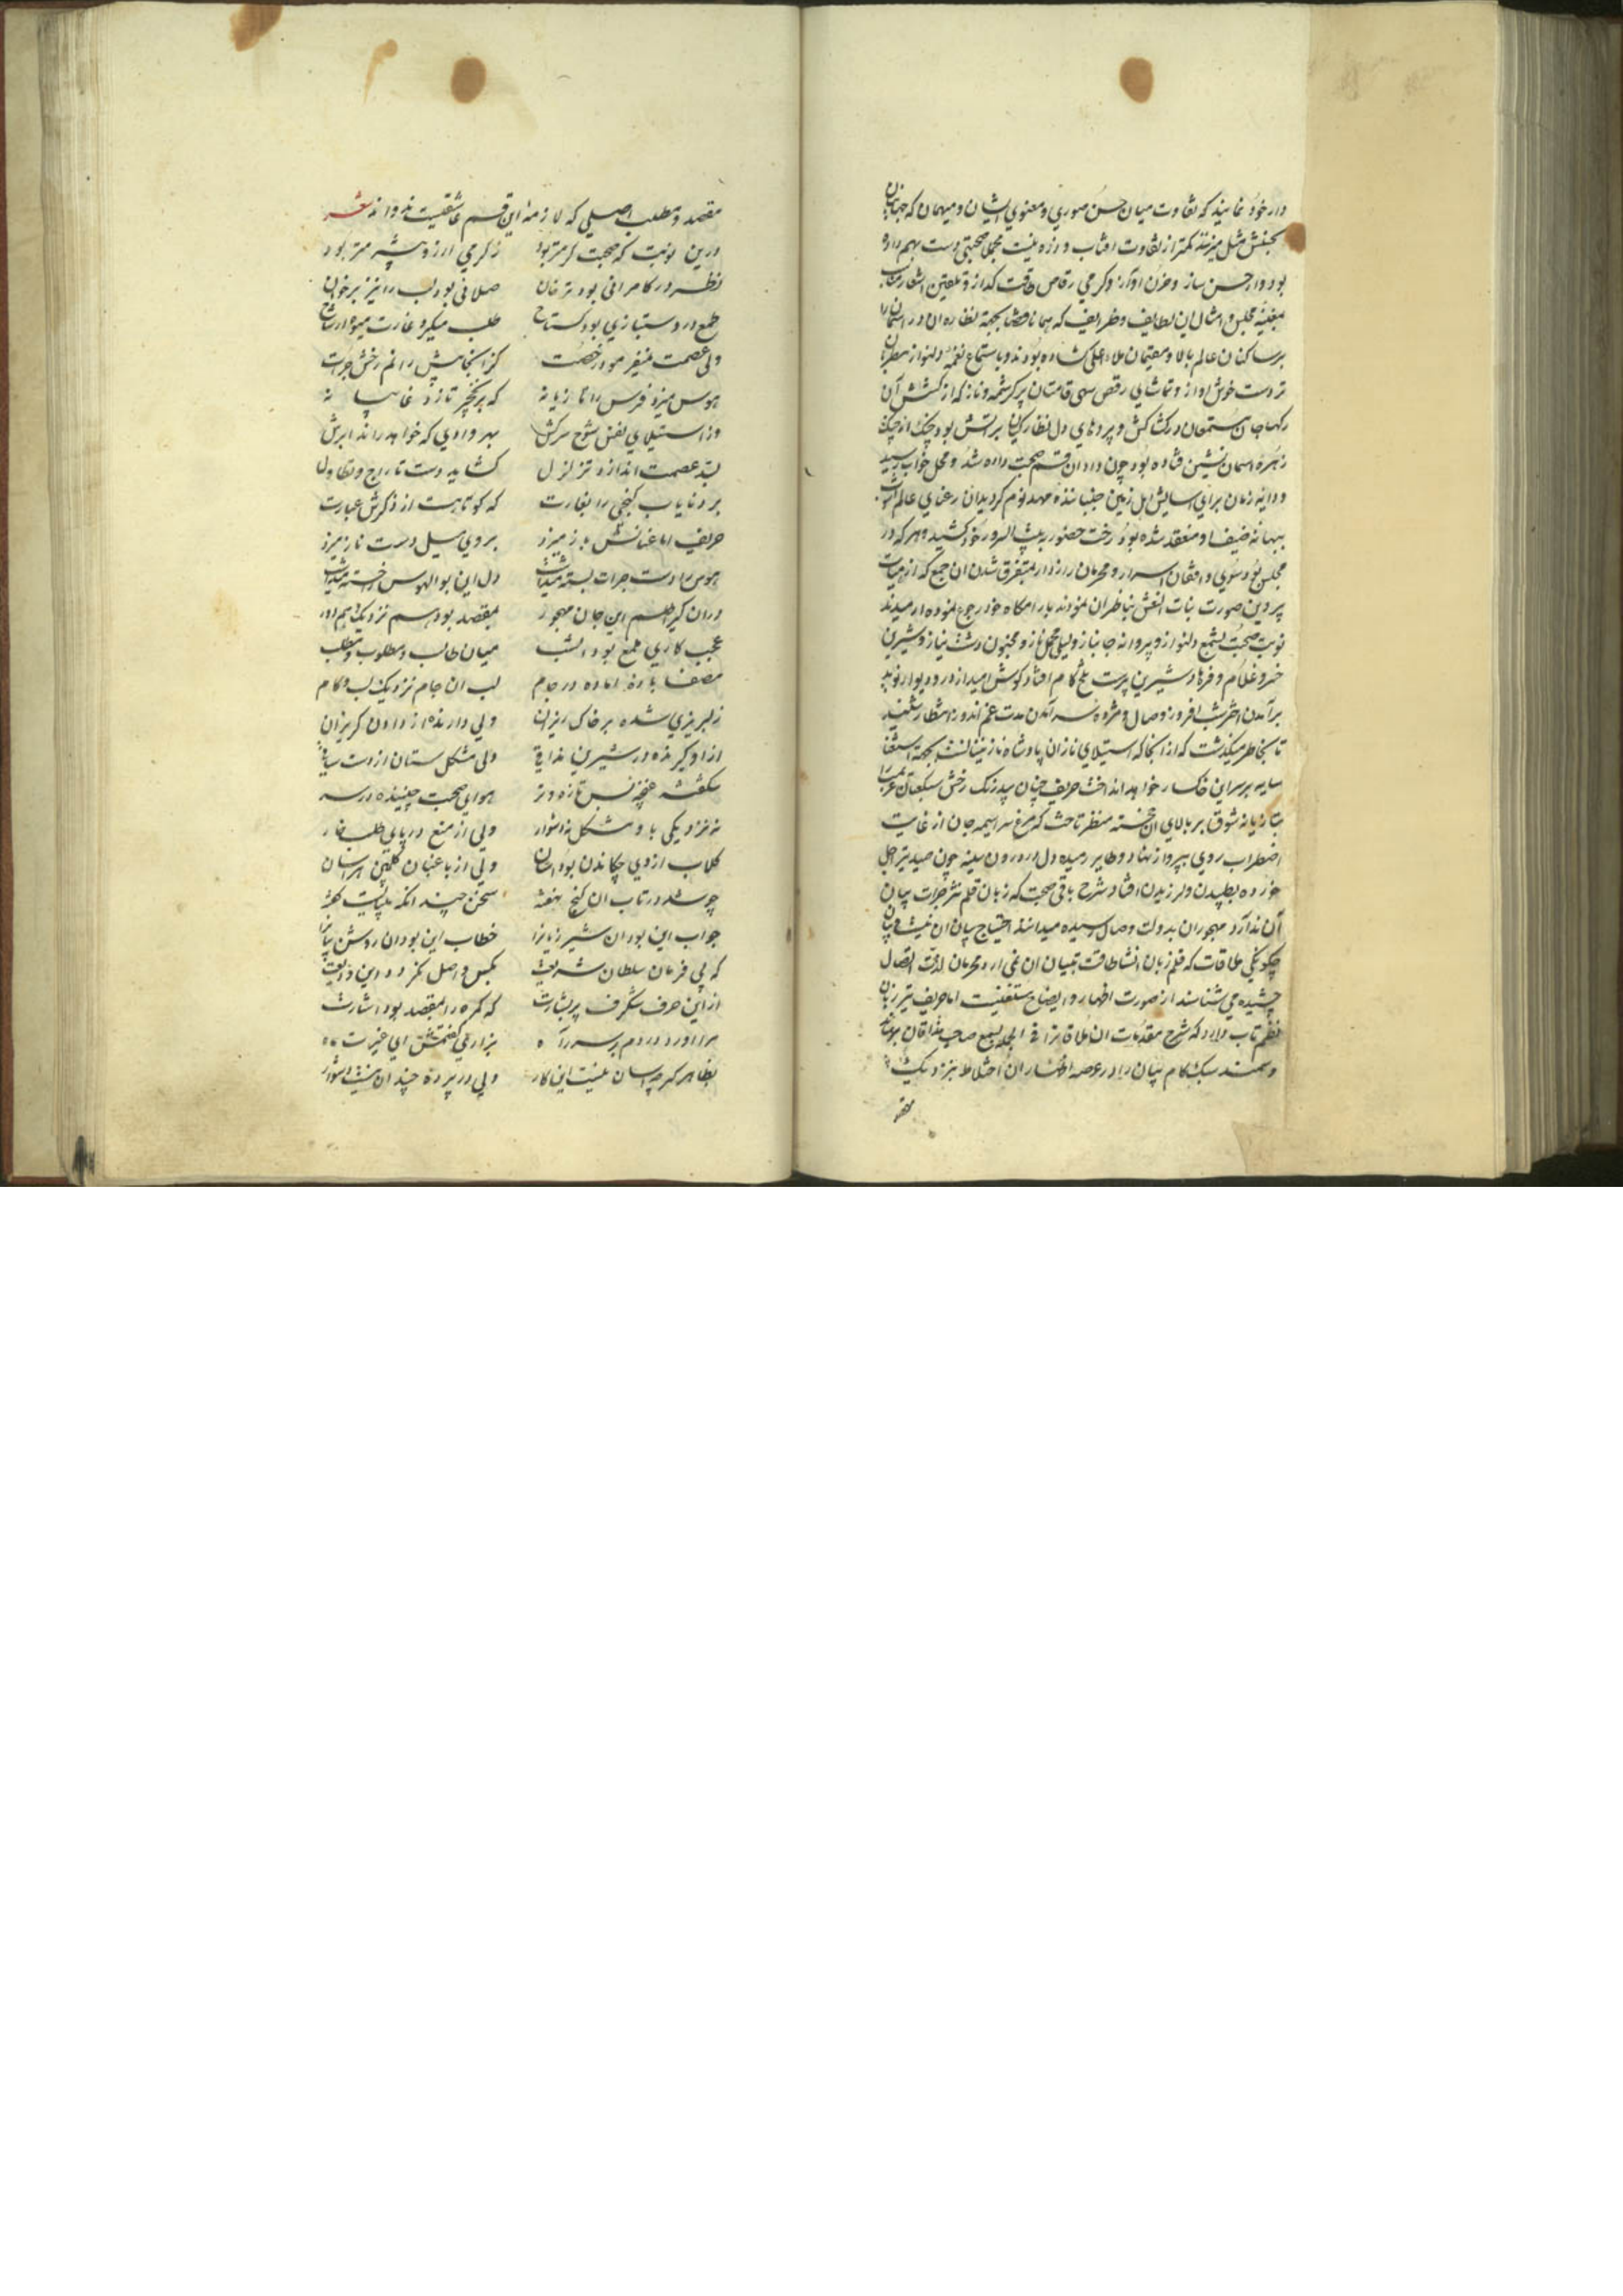 دار خود نمایند که تفاوت میان حسن صوری و معنوی ایشان و میهمان که
مثل میزنند کمتر از تفاوت افتاب و ذره نیست مجملا صحبتی دست بهم داده
بود و از حسن ساز و حزن آواز و گرمی رقاص طاقت گداز و تلقین اشعار
مغنیه مجلس و امثال این لطایف و ظرایف که بجهة نظاره ان در
بر ساکنان عالم بالا و مقیمان ملاء اعلی گشاده بودند و باستماع نغمه دلنواز مطربان
تر دست خوش اواز و تماشای رقص سهی قامتان پر کرشمه و ناز که از کشش آن
رکهاء جان مستمعان در کشاکش و پردهای دل نظارگیان پر آتش بود چنگ از چنگ
زهره اسمان نشین فتاده بود چون داد ان قسم صحبت داده شد و محل خواب رسید
و دایه زمان برای اسایش اهل زمین جنباننده مهد نوم گردید ان رعنای عالم
ببهانه ضیف او منعقد شده بود رخت حضور به سرور خود کشید و هر که در
مجلس بود سوی واقفان اسرار و محرمان رازدار متفرق شدن ان جمع که از هیات
پروین صورت بنات النعش بناظران نمودند بارامگاه خود رجوع نموده
نوبت صحبت بشمع دلنواز و پروانه جانباز و لیلی محمل ناز و مجنون دشت نیاز و شیرین
خسرو غلام و فرهاد شیرین پرست تلخ کام افتاد گوش امید از در و دیوار نوید
برآمدن اختر شب افروز وصال و مژده سر آمدن مدت غم اندوز انتظار شنید
تا بخاطر میگذشت که از انجا که استیلای ناز ان پادشاه نازنینانست بجهة استغنا
سایه بر سر این خاکسار خواهد انداخت حریف چنان بیدرنگ رخش سبکعنان
بتازیانه شوق بر بالای ان خجسته منظر تاخت که مرغ سراسیمه جان از غایت
اضطراب روی بپرواز نهاد و طایر رمیده دل در درون سینه چون صید تیر اجل
خورده بطپیدن و لرزیدن افتاد شرح باقی صحبت که زبان قلم نثر جرات بیان
آن ندارد مهجوران بدولت وصال رسیده میدانند احتیاج بیان ان نیست و بیان
چگونگی ملاقات که قلم زبان انشا طاقت تبیان ان نمی ارد محرمان لذت اتصال
چشیده می شناسند از صورت اظهار و ایضاح مستغنیست اما حریف تیز زبان
نظم تاب دارد که شرح مقدمات ان ملاقات را فی الجمله بسمع صاحب مذاقان برساند
و سمند سبک گام بیان را در عرصه اظهار ان اختلاط بنزدیک
مقصد و مطلب اصلی که لازمه این قسم عاشقیست بدواند شعر
درین نوبت که صحبت گرمتر بود ز گرمی ارزو پیشتر بود
نظر در کامرانی بود ترخان صلائی بود لب را نیز بر خوان
طمع در دستبازی بود گستاخ طلب میکرد غارت میوه از شاخ
ولی عصمت نمیفرمود رخصت کز انجا پیش رانم رخش جرات
هوس میزد فرس را تازیانه که بر نخچیر تازد غایبانه
وز استیلای نفس شوخ سرکش بهر وادی که خواهد راند ابرش
بسد عصمت اندازد تزلزل گشاید دست تاراج و تطاول
برد نایاب گنجی را بغارت که کوتاهست از ذکرش عبارت
حریف اما عنانش باز میزد بروی میل دست ناز میزد
هوس را دست جرات بسته میداشت دل این بوالهوس را خسته میداشت
دران گیر این جان مهجور بمقصد بود هم نزدیک و هم دور
عجب کاری طمع بود امشب میان طالب و مطلوب و مطلب
مصفا باده اماده در جام لب ان جام نزدیک لب و کام
ز لبریزی شده بر خاک ریزان ولی دارنده از دادن گریزان
ازاو گیرنده در شیرین مذاقی ولی مشکل ستان از دست ساقی
شگفته غنچه بس تازه و تر هوای صحبت چیننده در سر
نه نزدیکی باو مشکل نه دشوار ولی از منع در پای طلب خار
گلاب از وی چکاندن بود اسان ولی از باغبان گلچین هراسان
چو شد در تاب ان گنج نهفته سخن چند انکه میبایست گفته
جواب این بود ان شیرین زبانرا خطاب این بود ان روشن بیانرا
که بی فرمان سلطان شریعت بکس واصل نگردد این ودیعت
ازاین حرف شگرف پر بشارت که گمره را بمقصد بود اشارت
براورد دردم بر سر راه هزار
بظاهر گرچه اسان نیست این کار ولی در پرده چندان نیست دشوار